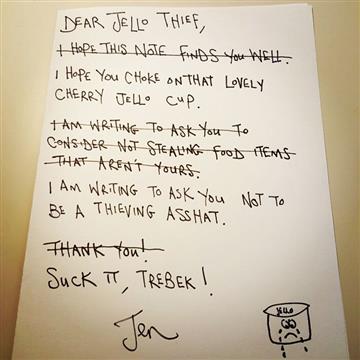 DEAR JELLO THIEF,
I HOPE THIS NOTE FINDS YOU WELL.
I HOPE YOU CHOKE ON THAT LOVELY
CHERRY JELLO CUP.
I AM WRITING TO ASK YOU TO
CONSIDER NOT STEALING FOOD ITEMS
THAT AREN'T YOURS.
I AM WRITING TO ASK YOU NOT TO
BE A THIEVING ASSHAT.
THANK YOU!
SUCK IT, TREBEK!
Jen
JELLO